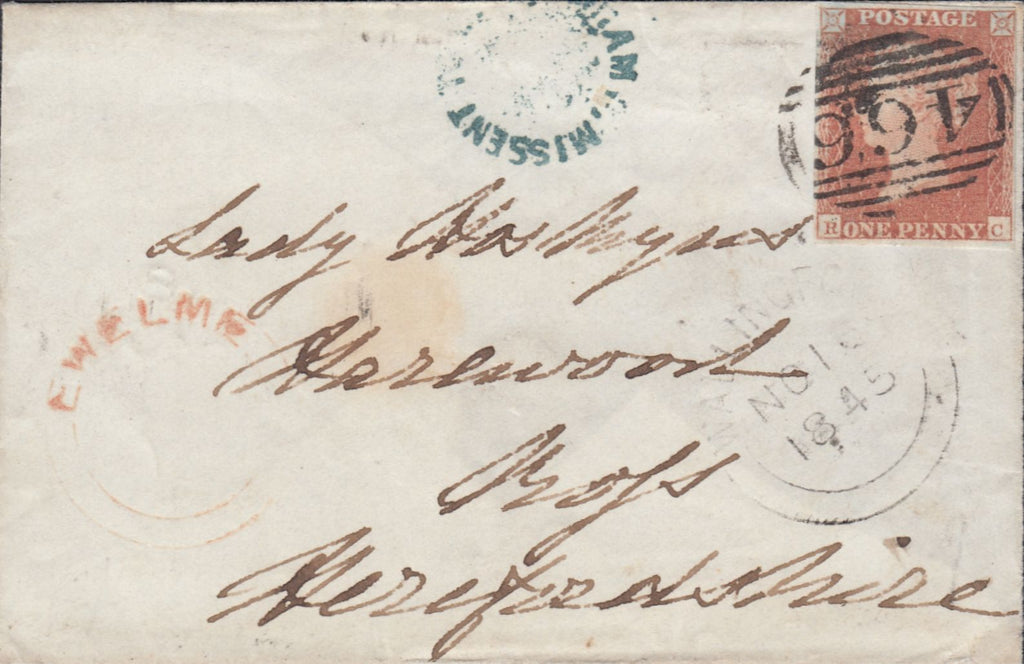 MISSENT
POSTAGE
466
R ONE PENNY C
Lady Hoskyns
EWELME
Harewood
NO 1
1845
Ross
Herefordshire